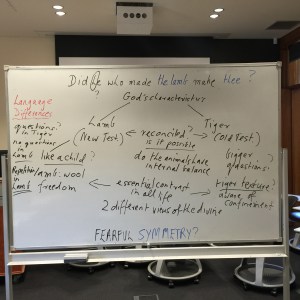 Did He who made the lamb make thee ?
?
God's characteristics
Language
Differences
Lamb
(New Test.)
← reconciled? →
is it possible
Tiger
(Old Test.)
questions?
in Tiger
no questions
in Lamb
like a child?
do the animals have
internal balance
bigger
questions:
Repetition
in Lamb
lamb: wool
freedom
← essential contrast →
in all life
tiger texture?
2 different views of the divine
FEARFUL SYMMETRY?